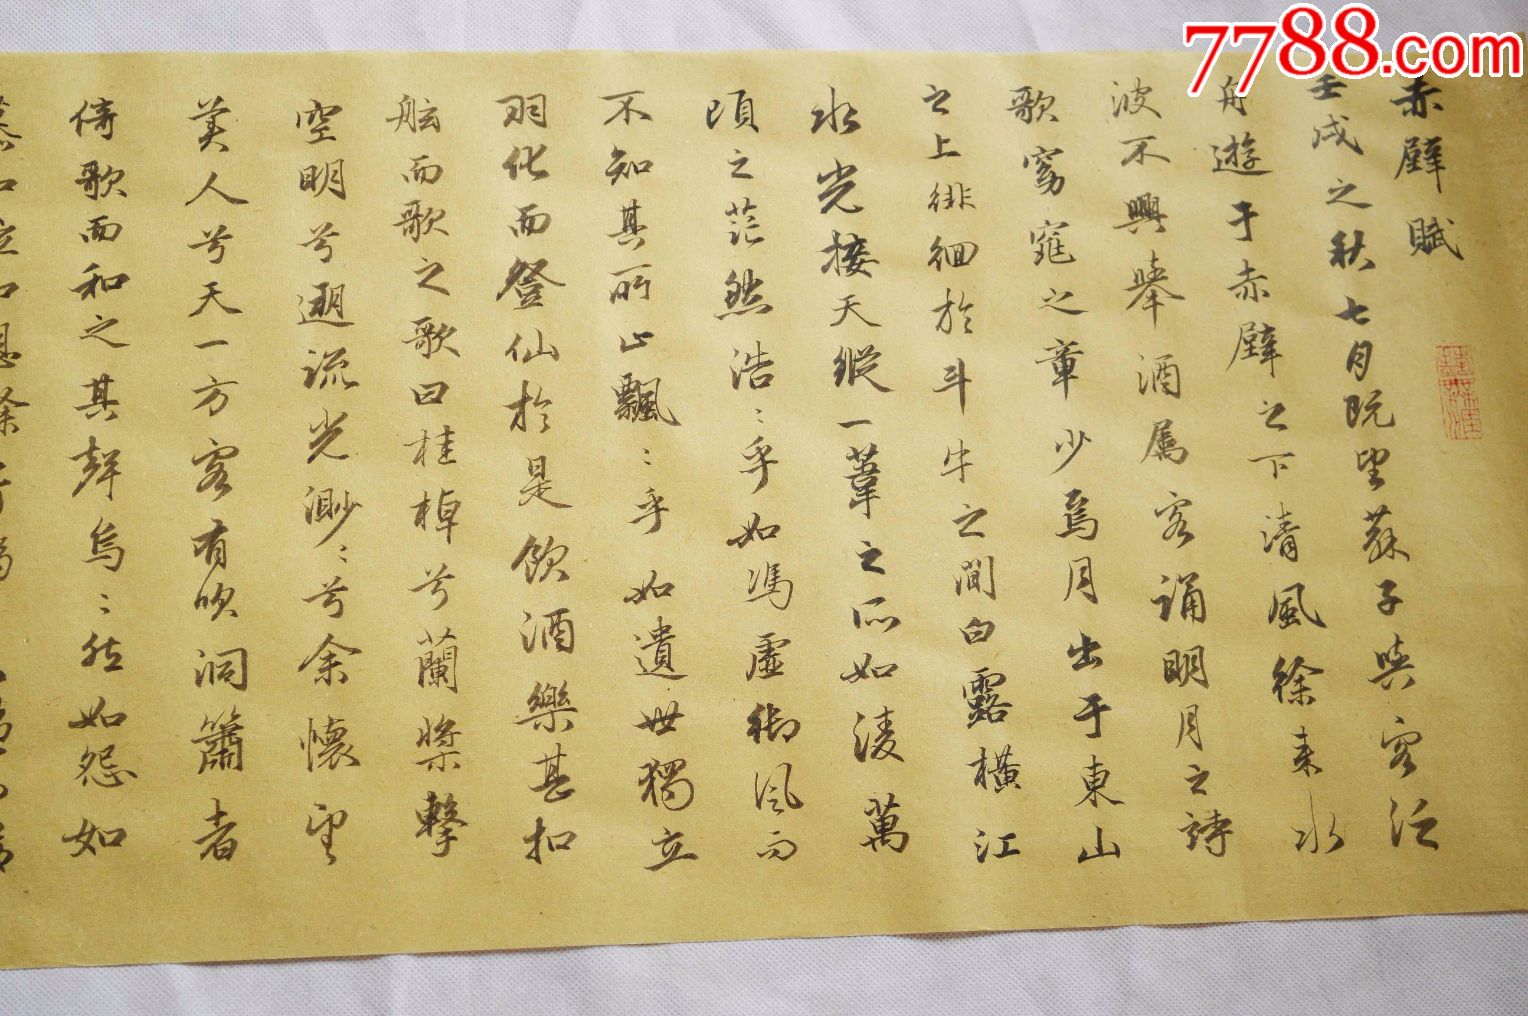 7788.com
赤壁賦
壬戌之秋七月既望蘇子與客泛
舟遊于赤壁之下清風徐来水
波不興舉酒属客誦明月之詩
歌窈窕之章少焉月出于東山
之上徘徊於斗牛之間白露橫江
水光接天縱一葦之所如淩萬
頃之茫然浩〻乎如馮虛御風而
不知其所止飄〻乎如遺世獨立
羽化而登仙於是飲酒樂甚扣
舷而歌之歌曰桂棹兮蘭槳擊
空明兮遡流光渺〻兮余懷望
美人兮天一方客有吹洞簫者
倚歌而和之其聲烏〻然如怨如